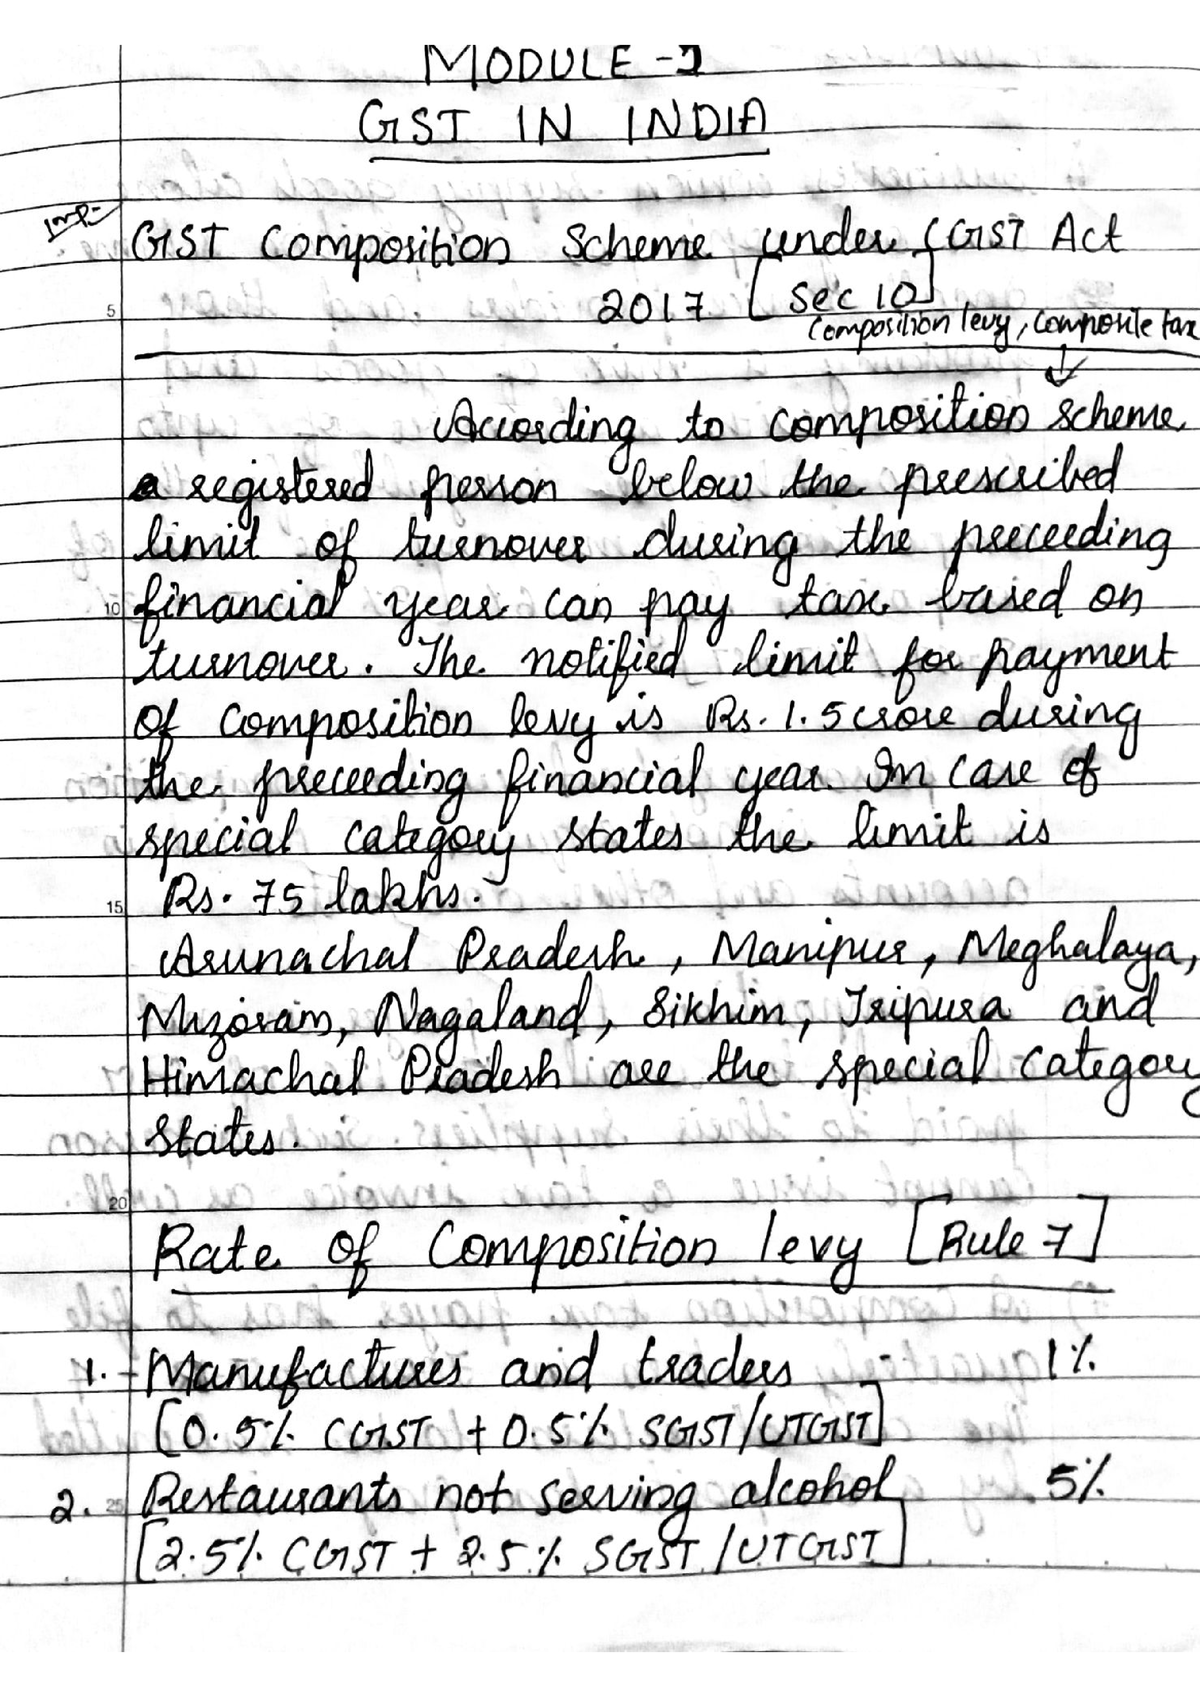 MODULE - 1
GST IN INDIA
Imp-
GST Composition Scheme under CGST Act
2017 [Sec 10]
Composition levy, Composite tax
According to composition scheme,
a registered person below the prescribed
limit of turnover during the preceeding
financial year can pay tax based on
turnover. The notified limit for payment
of composition levy is Rs. 1.5 crore during
the preceeding financial year. In case of
special category states the limit is
Rs. 75 lakhs.
Arunachal Pradesh, Manipur, Meghalaya,
Mizoram, Nagaland, Sikhim, Tripura and
Himachal Pradesh are the special category
states.
Rate of Composition levy [Rule 7]
1. Manufactures and traders - 1%
[0.5% CGST + 0.5% SGST/UTGST]
2. Restaurants not serving alcohol 5%
[2.5% CGST + 2.5% SGST/UTGST]
5
10
15
20
25